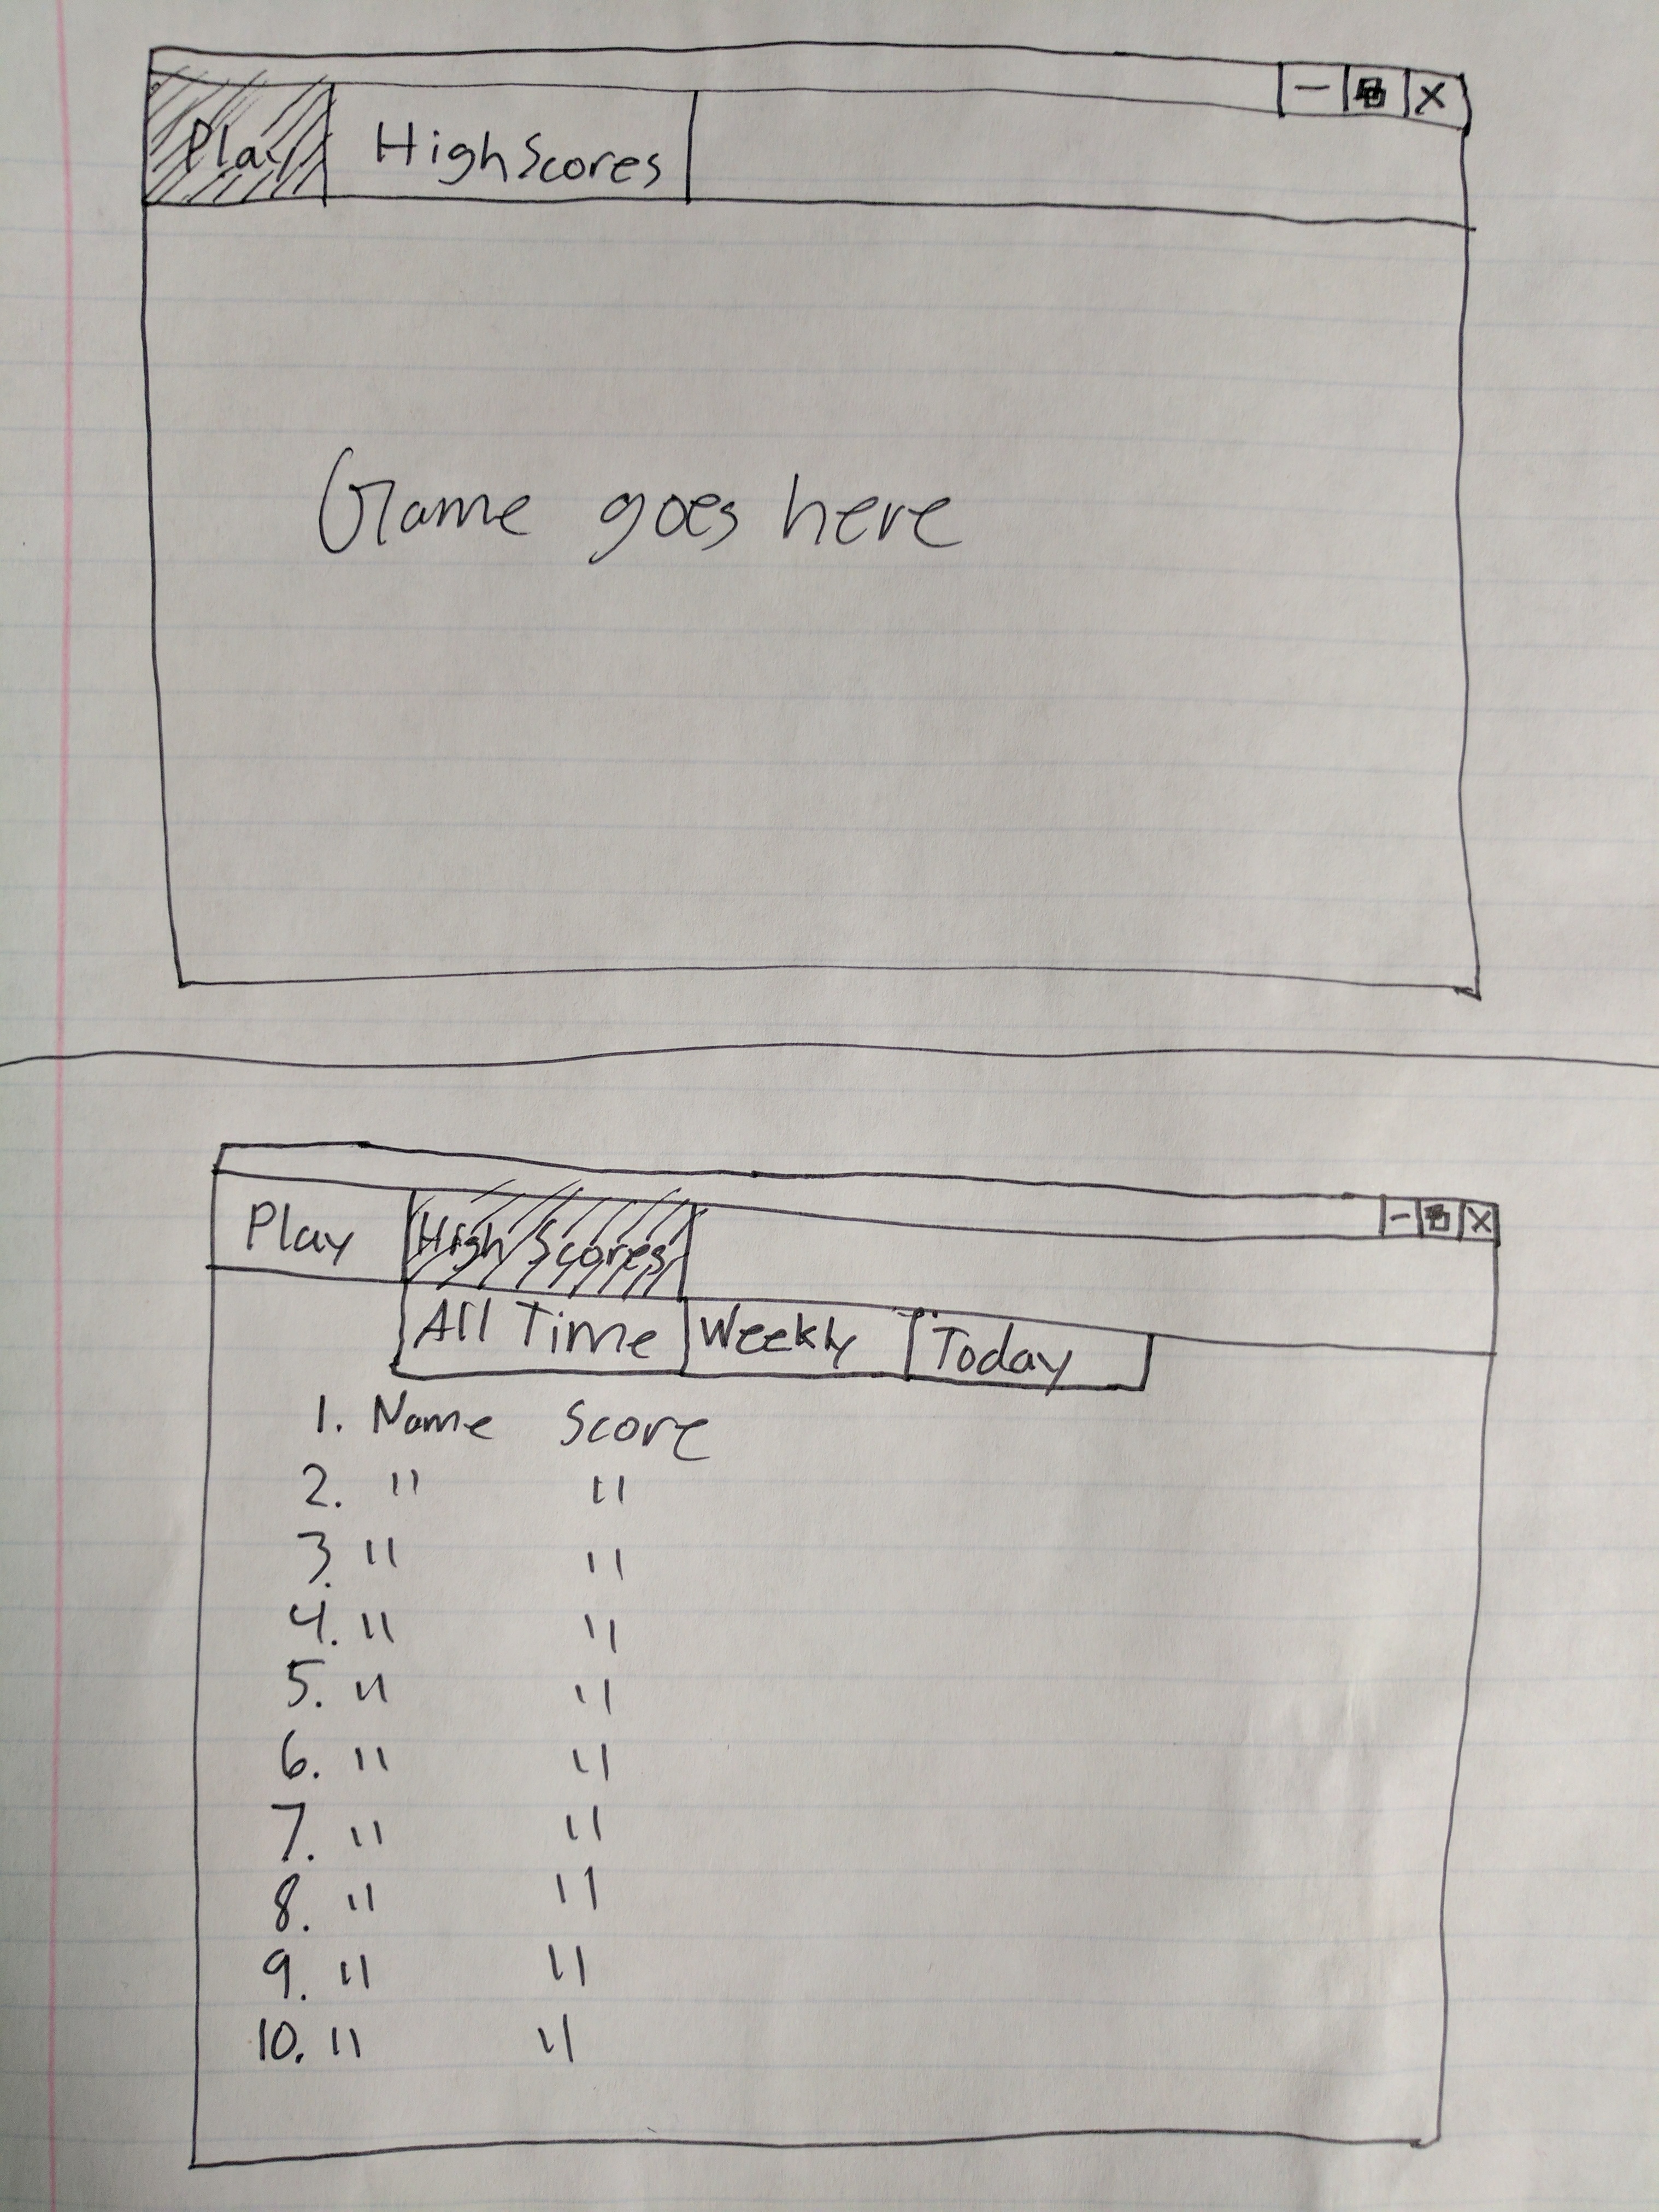 Play HighScores
Game goes here
Play High Scores
All Time Weekly Today
1. Name Score
2. " "
3. " "
4. " "
5. " "
6. " "
7. " "
8. " "
9. " "
10. " "